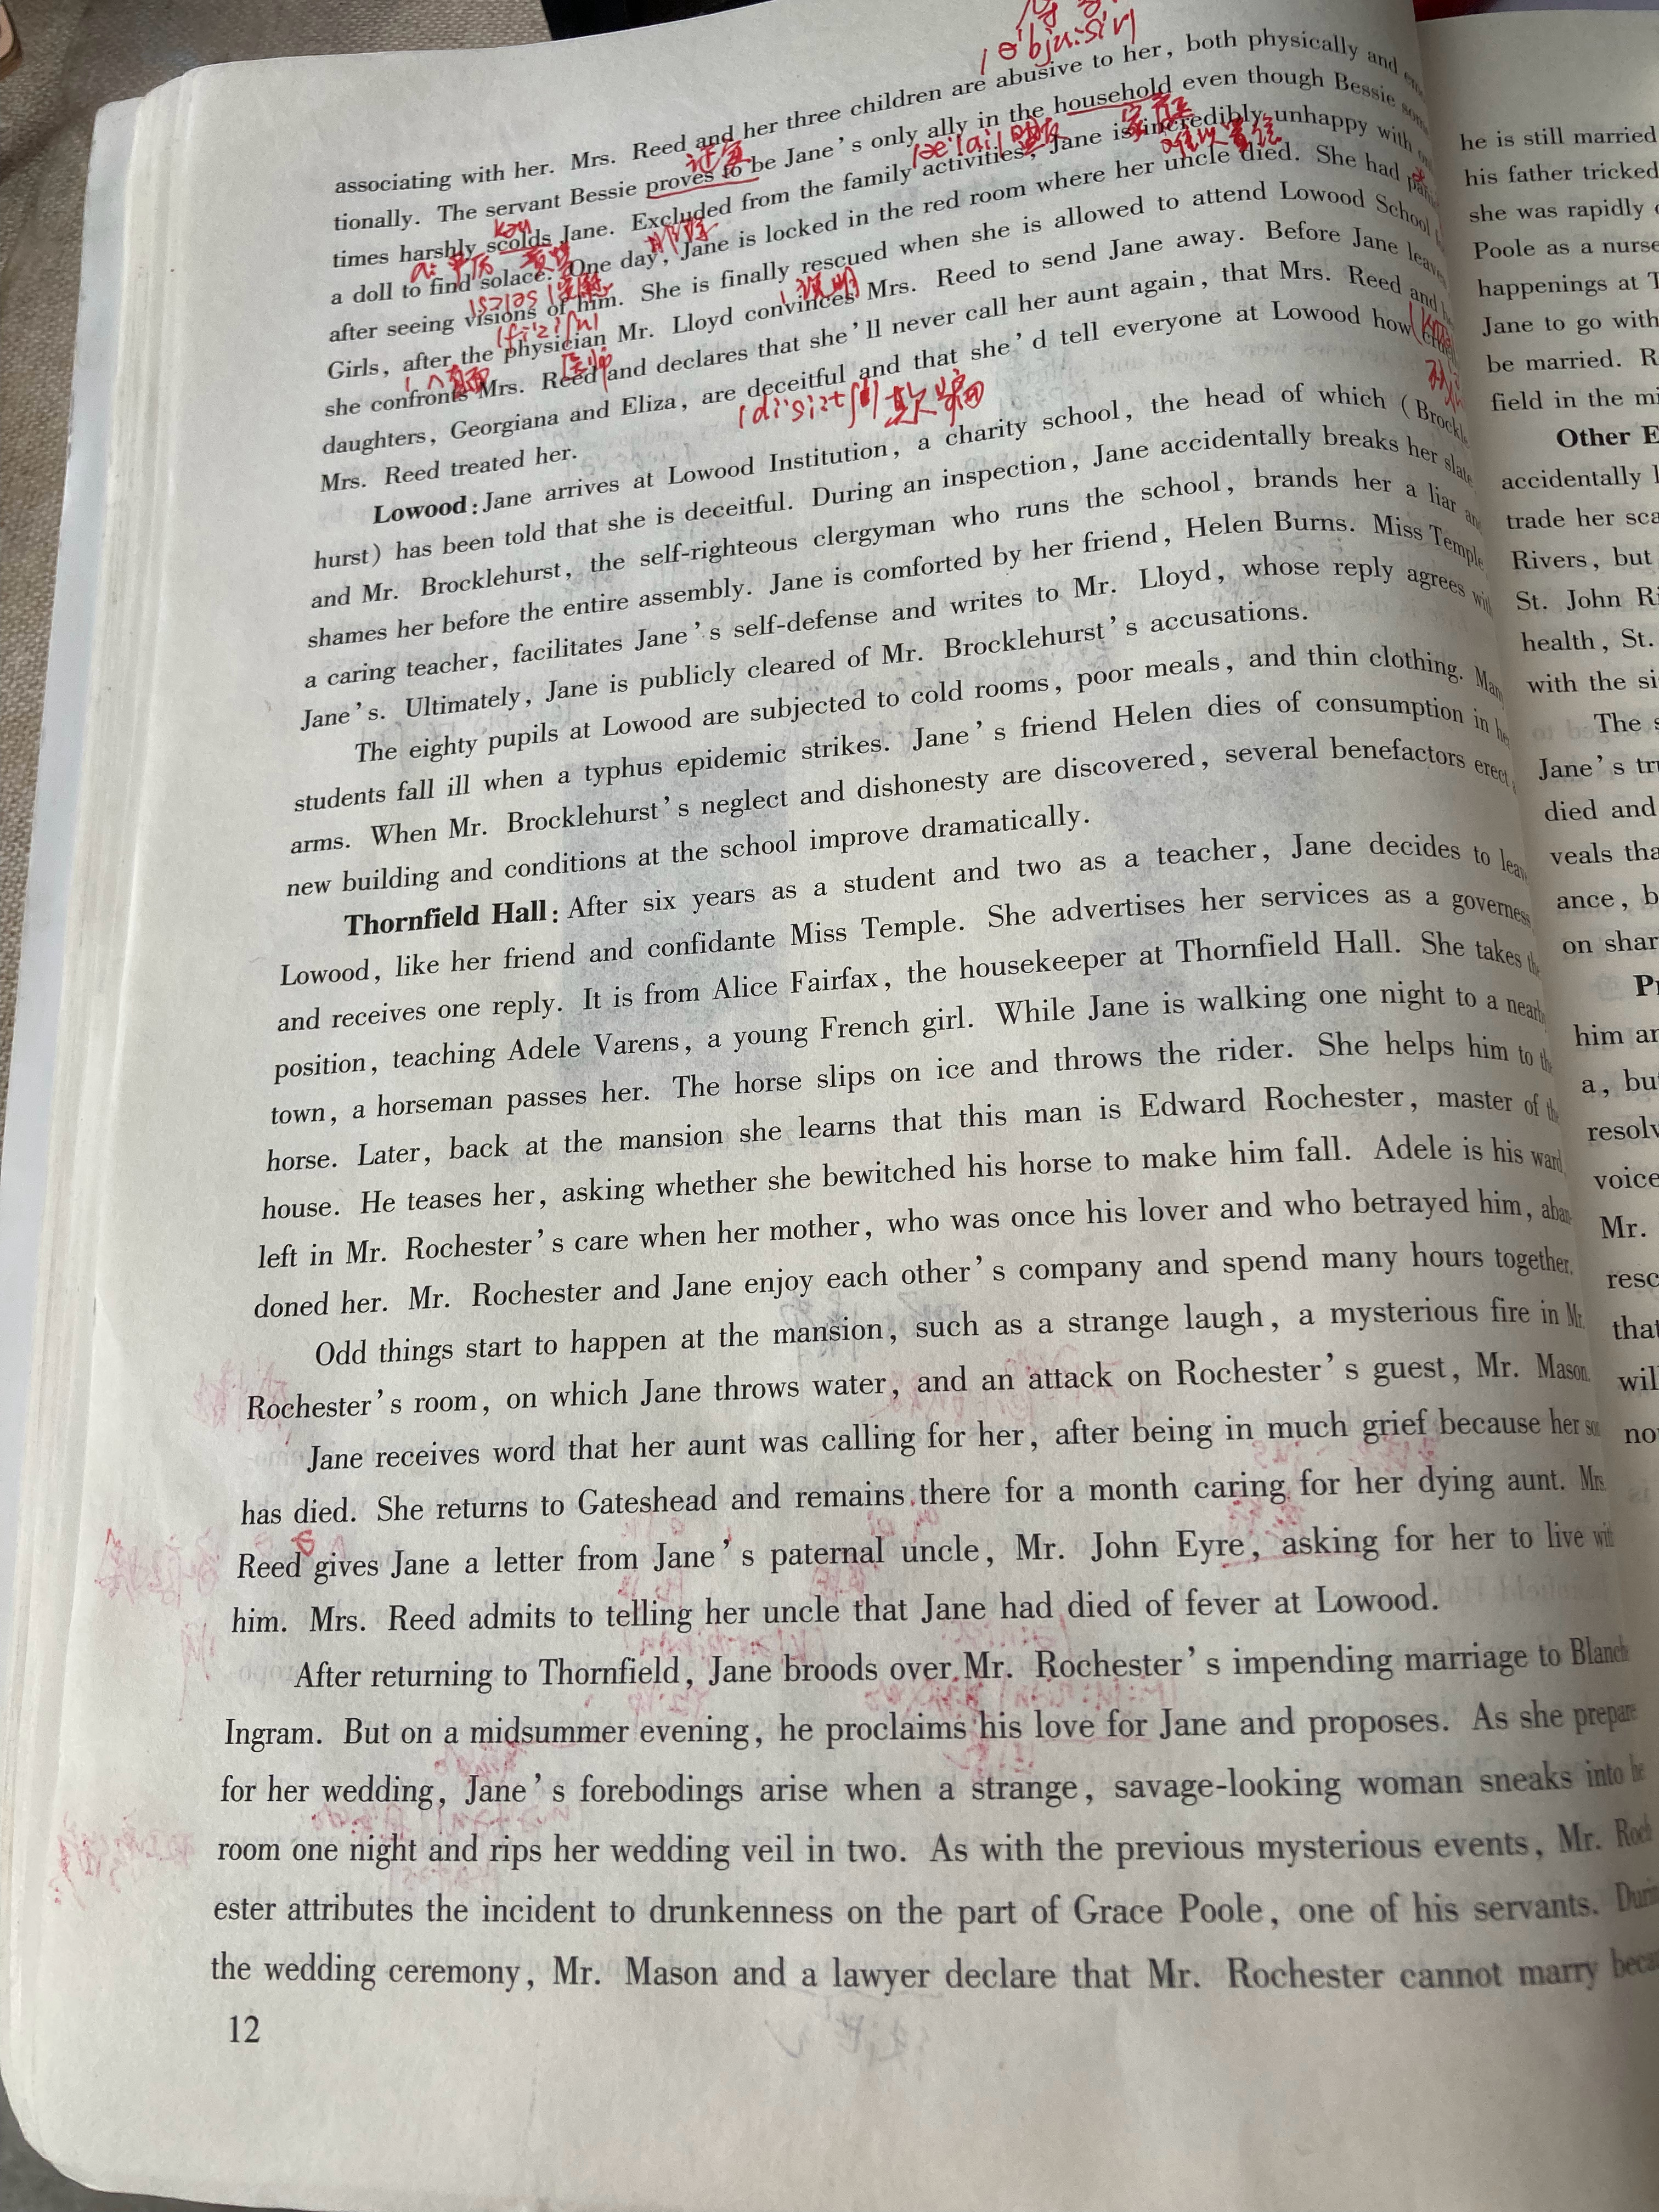 /ə'bju:siv/
associating with her. Mrs. Reed and her three children are abusive to her, both physically and
tionally. The servant Bessie proves to be Jane's only ally in the household even though Bessie
证实
/ə'lai/ 盟友
家庭
难以置信
times harshly scolds Jane. Excluded from the family activities, Jane is incredibly unhappy with
严厉
责骂
排除
a doll to find solace. One day, Jane is locked in the red room where her uncle died. She had
after seeing visions of him. She is finally rescued when she is allowed to attend Lowood School
说服
Girls, after the physician Mr. Lloyd convinces Mrs. Reed to send Jane away. Before Jane leaves
医师
she confronts Mrs. Reed and declares that she'll never call her aunt again, that Mrs. Reed and
daughters, Georgiana and Eliza, are deceitful and that she'd tell everyone at Lowood how cruelly
/di'si:tfl/ 欺骗
Mrs. Reed treated her.
Lowood: Jane arrives at Lowood Institution, a charity school, the head of which (Brockle
hurst) has been told that she is deceitful. During an inspection, Jane accidentally breaks her slate
and Mr. Brocklehurst, the self-righteous clergyman who runs the school, brands her a liar and
shames her before the entire assembly. Jane is comforted by her friend, Helen Burns. Miss Temple
a caring teacher, facilitates Jane's self-defense and writes to Mr. Lloyd, whose reply agrees with
Jane's. Ultimately, Jane is publicly cleared of Mr. Brocklehurst's accusations.
The eighty pupils at Lowood are subjected to cold rooms, poor meals, and thin clothing. Many
students fall ill when a typhus epidemic strikes. Jane's friend Helen dies of consumption in her
arms. When Mr. Brocklehurst's neglect and dishonesty are discovered, several benefactors erect a
new building and conditions at the school improve dramatically.
Thornfield Hall: After six years as a student and two as a teacher, Jane decides to leave
Lowood, like her friend and confidante Miss Temple. She advertises her services as a governess
and receives one reply. It is from Alice Fairfax, the housekeeper at Thornfield Hall. She takes the
position, teaching Adele Varens, a young French girl. While Jane is walking one night to a nearby
town, a horseman passes her. The horse slips on ice and throws the rider. She helps him to the
horse. Later, back at the mansion she learns that this man is Edward Rochester, master of the
house. He teases her, asking whether she bewitched his horse to make him fall. Adele is his ward,
left in Mr. Rochester's care when her mother, who was once his lover and who betrayed him, aban-
doned her. Mr. Rochester and Jane enjoy each other's company and spend many hours together.
Odd things start to happen at the mansion, such as a strange laugh, a mysterious fire in Mr.
Rochester's room, on which Jane throws water, and an attack on Rochester's guest, Mr. Mason.
Jane receives word that her aunt was calling for her, after being in much grief because her son
has died. She returns to Gateshead and remains there for a month caring for her dying aunt. Mrs.
Reed gives Jane a letter from Jane's paternal uncle, Mr. John Eyre, asking for her to live with
him. Mrs. Reed admits to telling her uncle that Jane had died of fever at Lowood.
After returning to Thornfield, Jane broods over Mr. Rochester's impending marriage to Blanche
Ingram. But on a midsummer evening, he proclaims his love for Jane and proposes. As she prepare
for her wedding, Jane's forebodings arise when a strange, savage-looking woman sneaks into he
room one night and rips her wedding veil in two. As with the previous mysterious events, Mr. Roch
ester attributes the incident to drunkenness on the part of Grace Poole, one of his servants. During
the wedding ceremony, Mr. Mason and a lawyer declare that Mr. Rochester cannot marry beca
12
he is still married
his father tricked
she was rapidly
Poole as a nurse
happenings at T
Jane to go with
be married. R
field in the mi
Other E
accidentally l
trade her sca
Rivers, but
St. John Ri
health, St.
with the si
The s
Jane's tr
died and
veals tha
ance, b
on shar
Pr
him an
a, bu
resolv
voice
Mr.
resc
that
wil
no